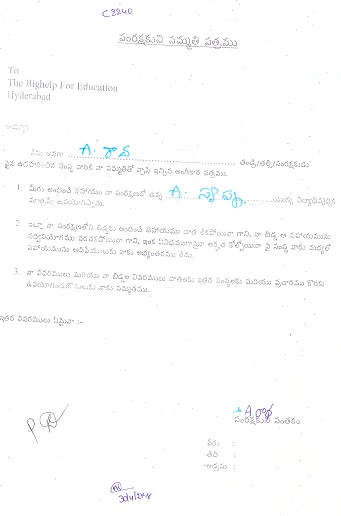 C2240
సంరక్షకుని సమ్మతి పత్రము
To
The Bighelp For Education
Hyderabad
అయ్యా!
నేను అనగా A. రాద తండ్రి/తల్లి/సంరక్షకుడు
పైన ఉదహరించిన సంస్థ వారికి నా సమ్మతితో వ్రాసి ఇచ్చిన అంగీకార పత్రము.
1. మీరు అందించే సహాయం నా సంరక్షణలో ఉన్న A. స్వప్న యొక్క విద్యాభివృద్ధికి
మాత్రమే ఉపయోగిస్తాను.
2. ఇట్లా నా సంరక్షణలోని బిడ్డకు అందించే సహాయము దాత లేకపోయినా గాని, నా బిడ్డ ఆ సహాయమును
సద్వినియోగము పరచకపోయినా గాని, ఇంక ఏవిధముగానైనా అర్హత కోల్పోయినా పై సంస్థ వారు మధ్యలో
సహాయమును ఆపివేయుటకు నాకు అభ్యంతరము లేదు.
3. నా వివరములు మరియు నా బిడ్డల వివరములు దాతలకు ఇతర సంస్థలకు మరియు ప్రచారము కొరకు
ఉపయోగించుకొనుటకు నాకు సమ్మతము.
ఇతర వివరములు ఏమైనా :-
A రాద
సంరక్షకుని సంతకం
పేరు :
తేది :
అడ్రసు :